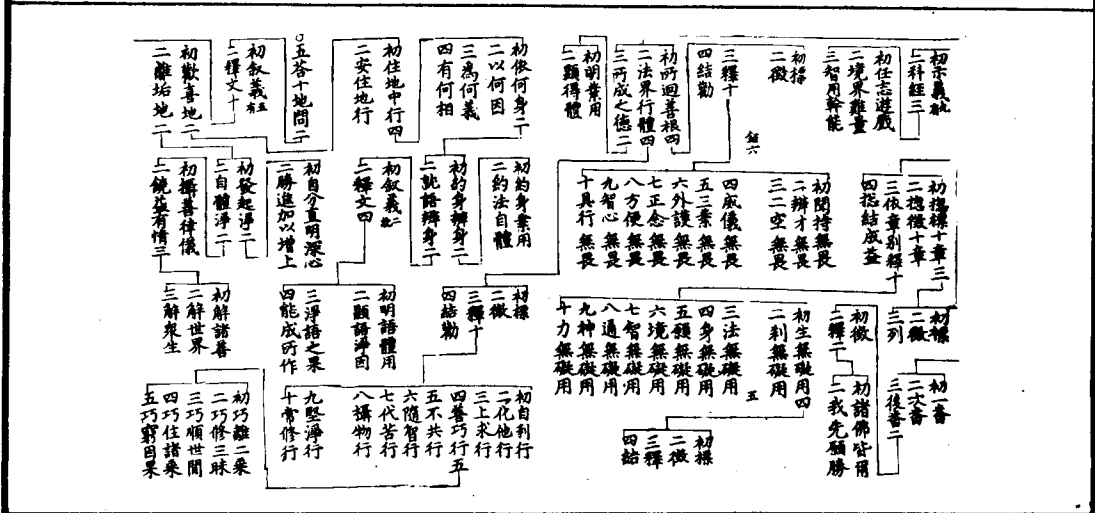 初示義
二科經三
初任志遊戲
二境界難量
三智用幹能
初標
二徵
三釋十
四結勸
初所迴善根四
二法界行體四
三所成之德二
初明業用
二顯得體
初依何身二
二以何因
三為何義
四有何相
初住地中行四
二安住地行
○五荅十地問二
初叙義五有
二釋文十
初歡喜地二
二離垢地二
初揔標十章三
二揔徵十章
三依章別釋十
四揔結成益
鈕六
初聞持無畏
二辨才無畏
三二空無畏
四威儀無畏
五三業無畏
六外護無畏
七正念無畏
八方便無畏
九智心無畏
十具行無畏
初約身業用
二約法自體
初約身辨身二
二就語辨身二
初叙義二
二釋文四
初自分直明深心
二勝進加以增上
初發起淨二
二自體淨二
初攝善律儀
二饒益有情三
初標
二徵
三列
初徵
二釋二
初生無礙用四
二刹無礙用
三法無礙用
四身無礙用
五願無礙用
六境無礙用
七智無礙用
八通無礙用
九神無礙用
十力無礙用
五
初標
二徵
三釋十
四結勸
初明語體用
二顯語淨因
三淨語之果
四能成所作
初解諸善
二解世界
三解衆生
初一番
二次番
三後番二
初諸佛皆爾
二我先願勝
初標
二徵
三釋
四結
初自利行
二化他行
三上求行
四善巧行五
五不共行
六隨智行
七代苦行
八攝物行
九堅淨行
十常修行
初巧離二乘
二巧修三昧
三巧順世間
四巧住諸乘
五巧窮因果